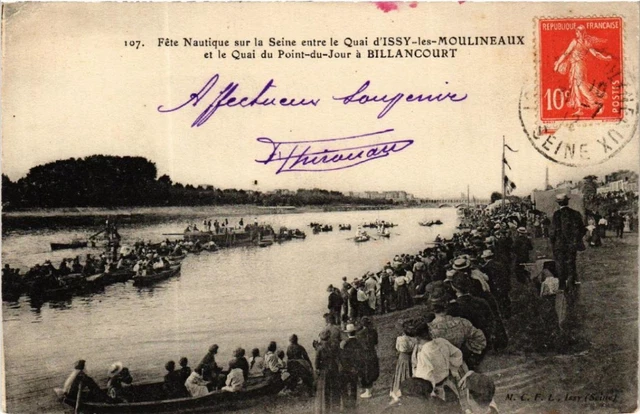 107. Fête Nautique sur la Seine entre le Quai d'ISSY-les-MOULINEAUX
et le Quai du Point-du-Jour à BILLANCOURT
REPUBLIQUE FRANÇAISE
10c
POSTES
Affectueux souvenir
SEINE
M. C. F. L., Issy (Seine)